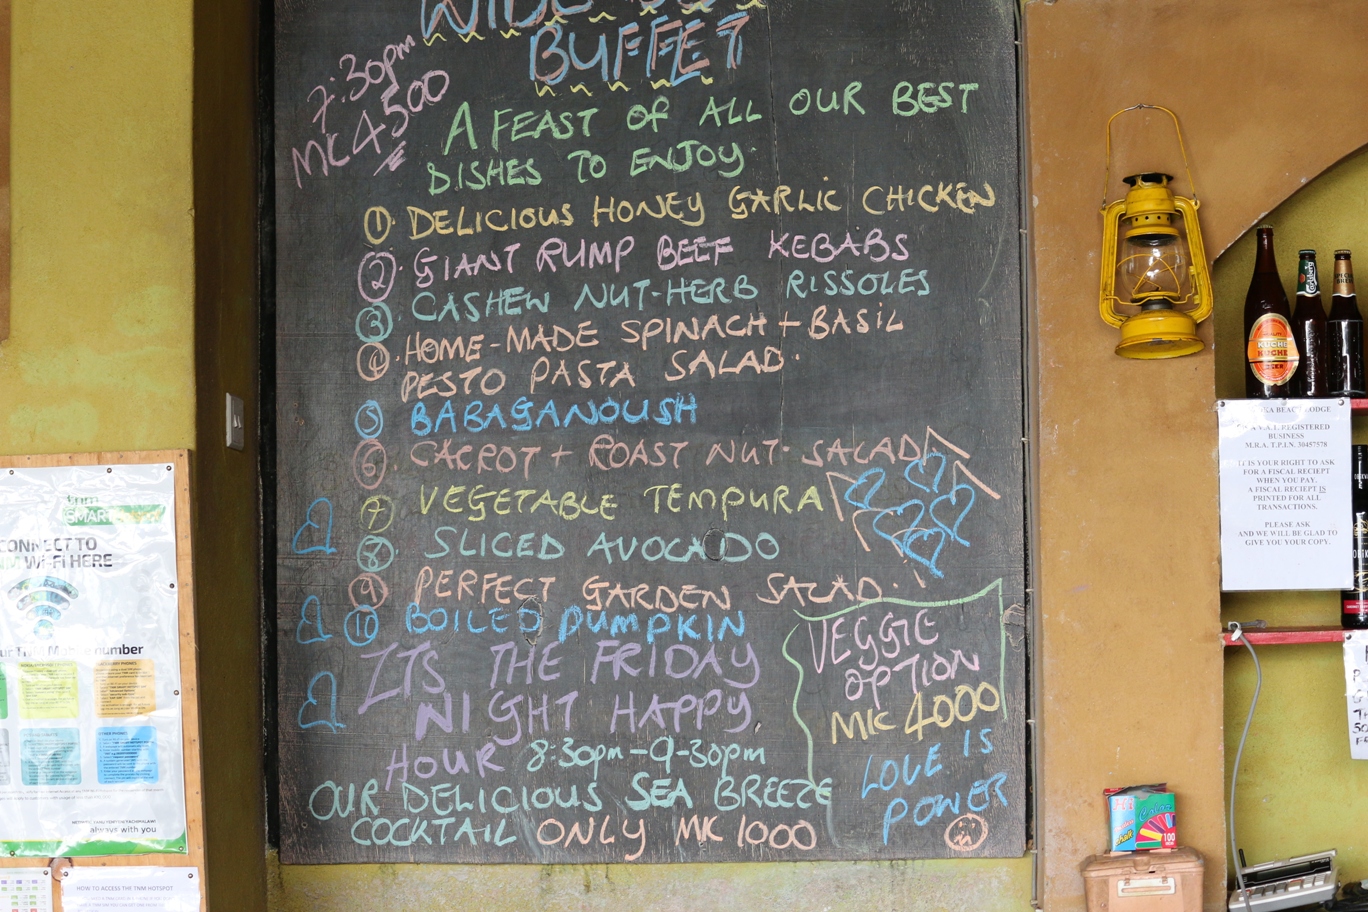 BUFFET
7:30pm
MK4500
A FEAST OF ALL OUR BEST
DISHES TO ENJOY
1. DELICIOUS HONEY GARLIC CHICKEN
2. GIANT RUMP BEEF KEBABS
3 CASHEW NUT-HERB RISSOLES
4. HOME-MADE SPINACH + BASIL
PESTO PASTA SALAD.
5 BABAGANOUSH
6 CARROT + ROAST NUT. SALAD
7 VEGETABLE TEMPURA
8 SLICED AVOCADO
9 PERFECT GARDEN SALAD.
10 BOILED PUMPKIN
ITS THE FRIDAY
NIGHT HAPPY
HOUR 8:30pm-9-30pm
OUR DELICIOUS SEA BREEZE
COCKTAIL ONLY MK 1000
VEGGIE
OPTION
MK 4000
LOVE IS
POWER
tnm
SMART
CONNECT TO
WI-FI HERE
TNM Mobile number
always with you
HOW TO ACCESS THE TNM HOTSPOT
Carlsberg
KUCHE
KUCHE
BEACH LODGE
V.A.T. REGISTERED
BUSINESS
M.R.A. T.P.I.N. 30457578
IT IS YOUR RIGHT TO ASK
FOR A FISCAL RECIEPT
WHEN YOU PAY.
A FISCAL RECIEPT IS
PRINTED FOR ALL
TRANSACTIONS.
PLEASE ASK
AND WE WILL BE GLAD TO
GIVE YOU YOUR COPY.
100